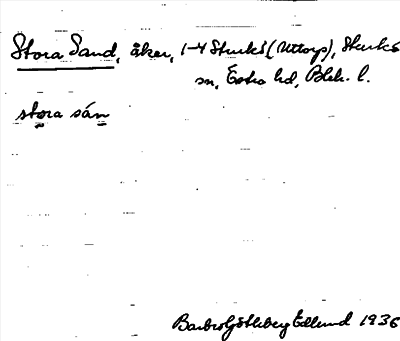 Stora Sand, åker, 1-4 Sturkö (Uttorp), Sturkö
sn, Östra hd, Blek. l.
stora sán
Barbro Götlberg Edlund 1936